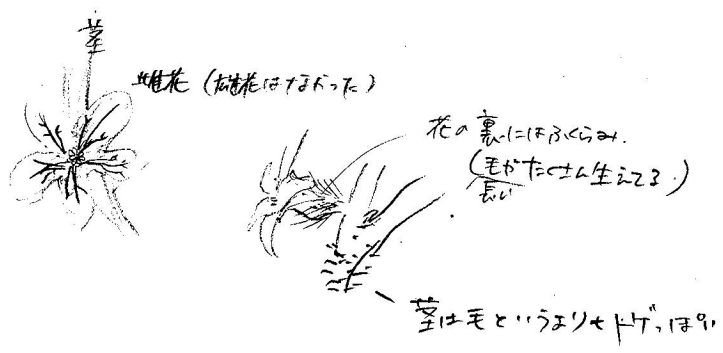 茎
雌花 (雄花はなかった)
花の裏にはふくらみ.
(毛がたくさん生えてる.)
長い
茎は毛というよりもトゲっぽい